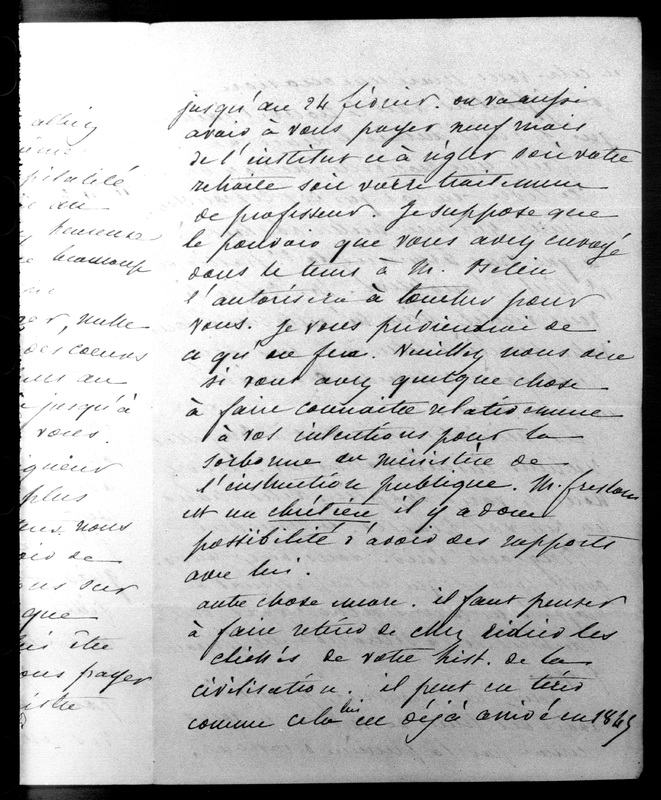 albin
pitalité
au
heureuse
beaucoup
nulle
des coeurs
au
jusqu'à
vous.
plus
nous
de
sur
que
être
payer
jusqu'au 24 février. on va aussi
avoir à vous payer neuf mois
de l'institut et à régler soit votre
retraite soit votre traitement
de professeur. Je suppose que
le pouvoir que vous avez envoyé
dans le tems à M. Belin
l'autorisera à toucher pour
vous. Je vous préviendrai de
ce qui se fera. Veuillez nous dire
si vous avez quelque chose
à faire connaitre relativement
à vos intentions pour la
sorbonne au ministère de
l'instruction publique. M. freslon
est un chrétien il y a donc
possibilité d'avoir des rapports
avec lui.
autre chose encore. il faut penser
à faire retirer de chez Didier les
clichés de votre hist. de la
civilisation. il peut en tirer
comme cela lui est déjà arrivé en 1845